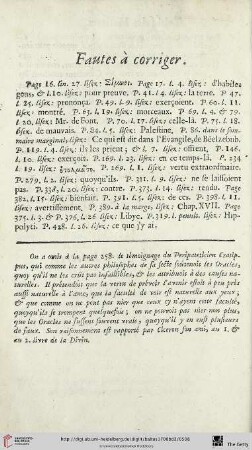 Fautes à corriger.
Page 16. lin. 27. lisez: Σίμων. Page 17. l. 4. lisez: d'habiles
gens & l. 10. lisez: pour preuve. P. 41. l. 4. lisez: la terre. P. 47.
l. 25. lisez: prononça. P. 49. l. 9. lisez: exerçoient. P. 60. l. 11.
lisez: montré. P. 63. l. 19. lisez: morceaux. P. 69. l. 4. & P. 79.
l. 20. lisez: Mr. de Font. P. 70. l. 17. lisez: celle-là. P. 75. l. 18.
lisez: de mauvais. P. 84. l. 5. lisez: Palestine, P. 86. dans le som-
maire marginal, lisez: Ce qui est dit dans l'Evangile, de Béelzebub.
P. 119. l. 4. lisez: ils les prient; & l. 7. lisez: offrent, P. 146.
l. 10. lisez: exerçoit. P. 169. l. 23. lisez: en ce temps-là. P. 234
l. 19. lisez: P. 269. l. 11. lisez: vertu extraordinaire.
P. 279. l. 2. lisez: quoyqu'ils. P. 331. l. 6. lisez: ne se laissoient
pas. P. 338. l. 20. lisez: contre. P. 373. l. 14. lisez: rendu. Page
382. l. 15. lisez: bienfait. P. 391. l. 5. lisez: de ces. P. 398. l. 11.
lisez: avertissement, P. 389. à la marge lisez: Chap. XVII. Page
375. l. 3. & P. 376. l. 26 lisez: Libye. P. 319. l. penult. lisez: Hip-
polyti. P. 428. l. 26. lisez: ce que j'y ai.
On a omis à la page 258. le témoignage du Peripateticien Cesalpi-
nus, qui comme les autres philosophes de sa secte soûtenoit les Oracles,
quoy qu'il ne les crût pas infaillibles, & les attribuoit à des causes na-
turelles. Il prétendoit que la vertu de prévoir l'avenir estoit à peu près
aussi naturelle à l'ame, que la faculté de voir est naturelle aux yeux;
& que comme on ne peut pas nier que ceux cy n'ayent cette faculté,
quoyqu'ils se trompent quelquefois; on ne pouvoit pas nier non plus,
que les Oracles ne fussent souvent vrais, quoyqu'il y en eust plusieurs
de faux. Son raisonnement est rapporté par Ciceron son ami, au 1. &
au 2. livre de la Divin.
The Getty